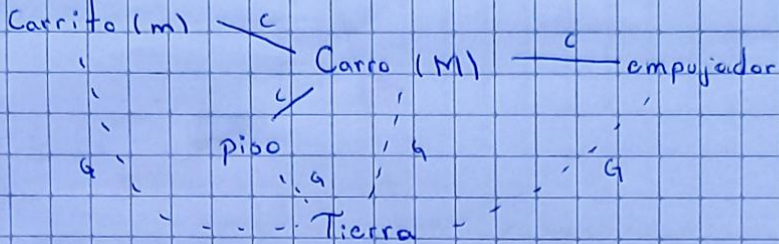 Carrito (m) C
Carro (M) C empujador
C
piso G
G G G
Tierra